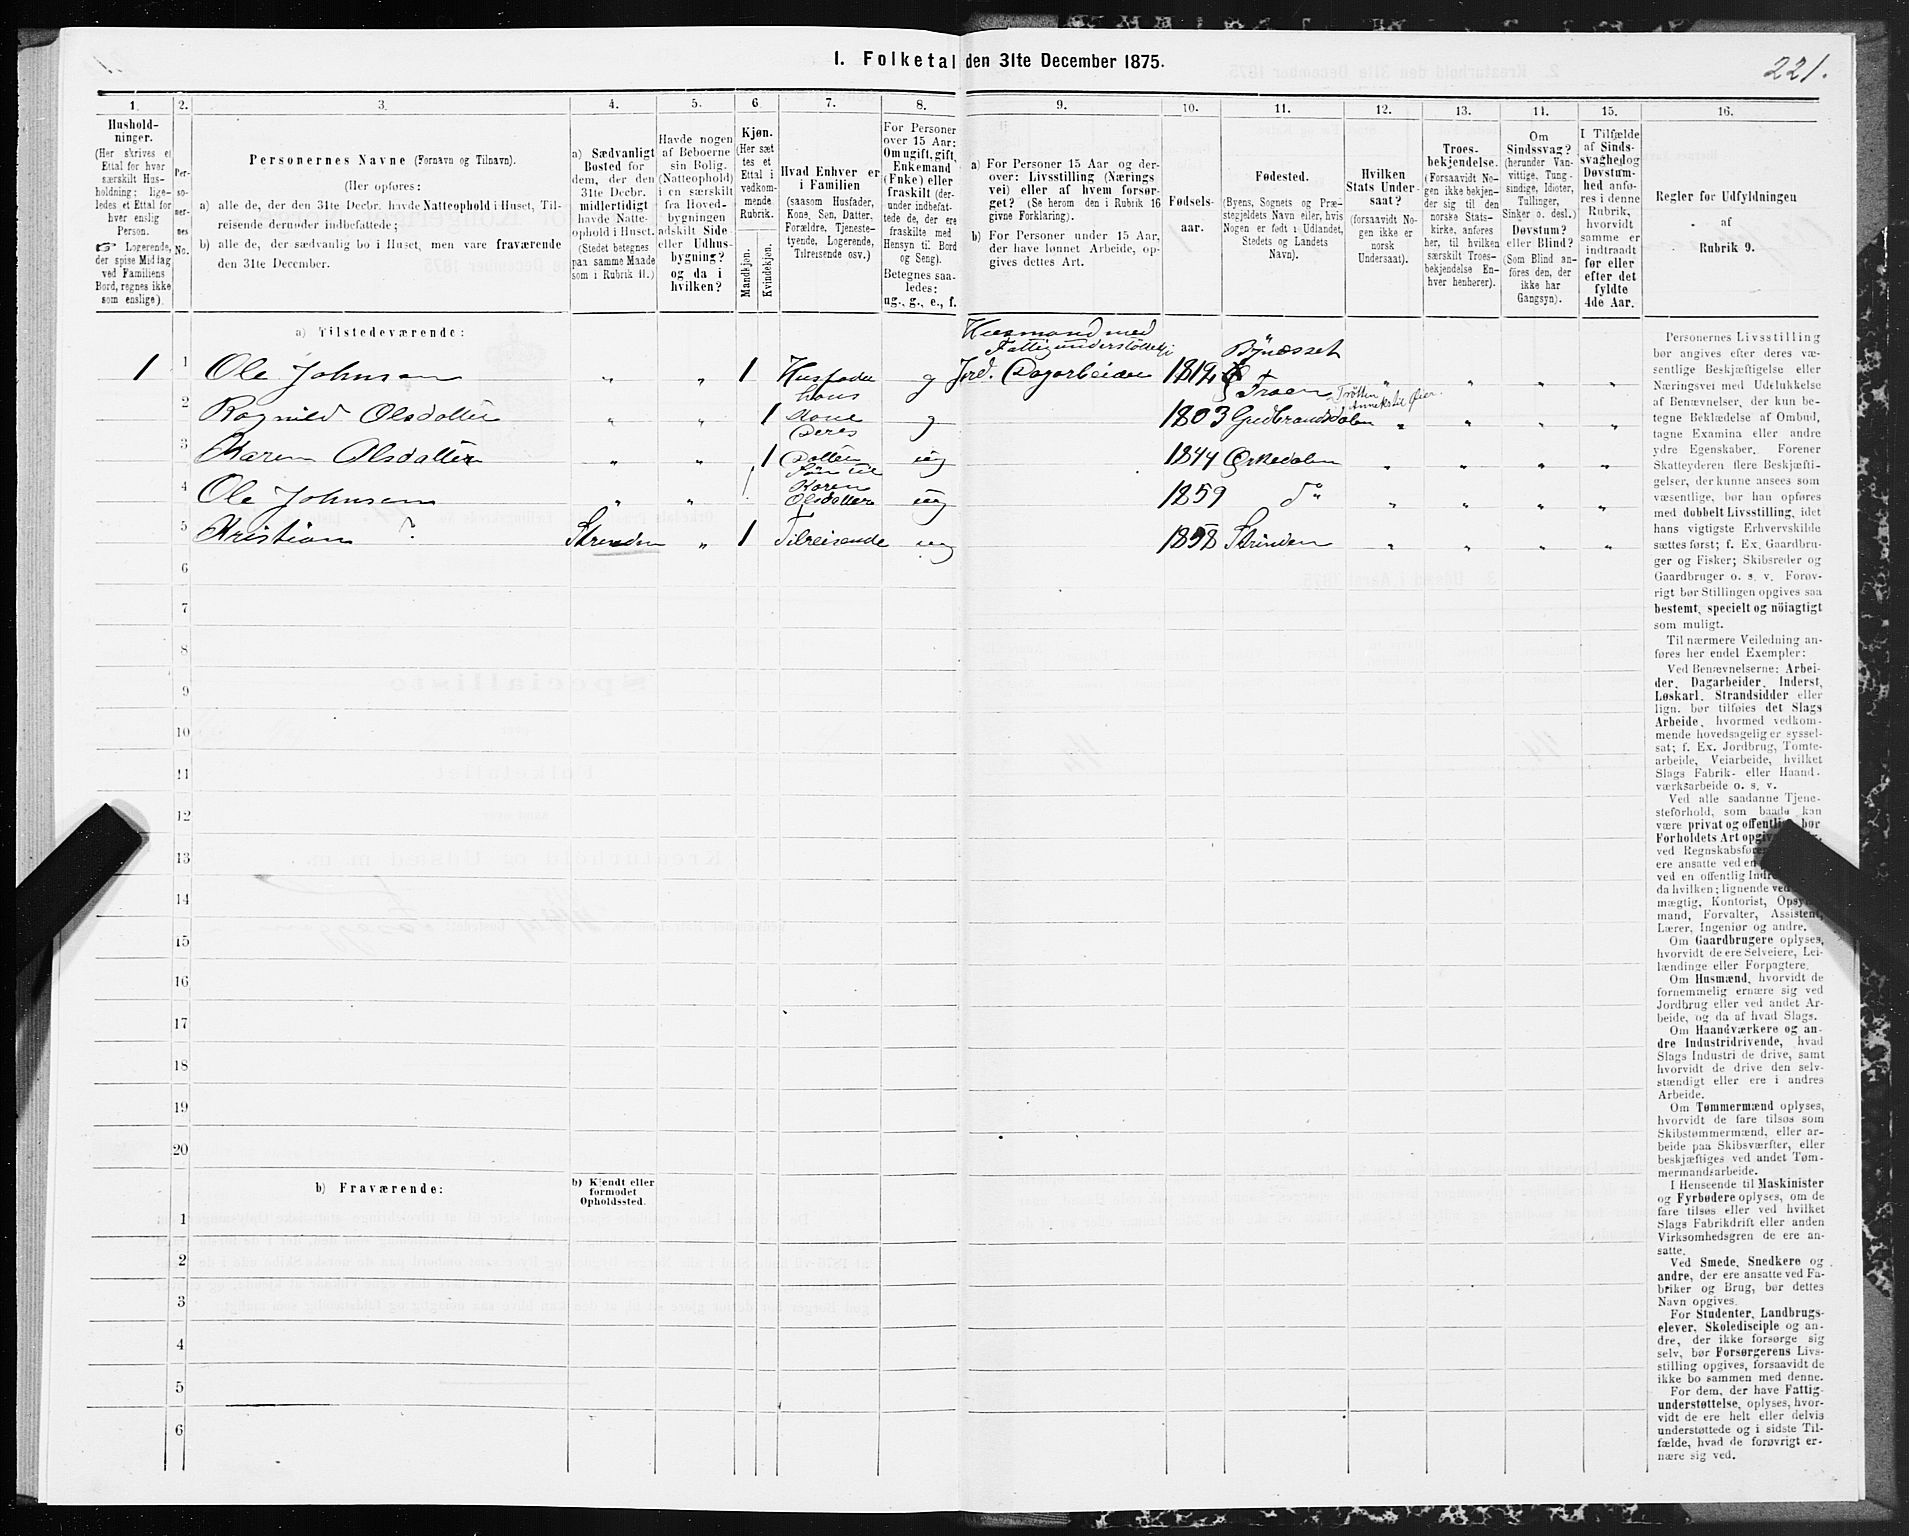 221.
1. Folketal den 31te December 1875.
1. 2. 3. 4. 5. 6. 7. 8. 9. 10. 11. 12. 13. 14. 15. 16.
Hushold-
ninger.
(Her skrives et
Ettal for hver
særskilt Hus-
holdning; lige-
ledes et Ettal for
hver enslig
Person.
☞ Logerende,
der spise Midtag
ved Familiens
Bord, regnes ikke
som enslige).
Per-
so-
ner-
nes
No.
Personernes Navne (Fornavn og Tilnavn).
(Her opføres:
a) alle de, der den 31te Decbr. havde Natteophold i Huset, Til-
reisende derunder indbefattede;
b) alle de, der sædvanlig bo i Huset, men vare fraværende
den 31te December.
a) Sædvanligt
Bosted for
dem, der den
31te Decbr.
midlertidigt
havde Natte-
ophold i Huset.
(Stedet betegnes
paa samme Maade
som i Rubrik 11.)
Havde nogen
af Beboerne
sin Bolig.
(Natteophold)
i en særskilt
fra Hoved-
bygningen
adskilt Side-
eller Udhus-
bygning?
og da i
hvilken?
Kjøn.
(Her sæt
tes et
Ettal i
vedkom-
mende
Rubrik.
Mandkjøn.
Kvindekjøn.
Hvad Enhver er
i Familien
(saasom Husfader,
Kone, Søn, Datter,
Forældre, Tjeneste-
tyende, Logerende,
Tilreisende osv.)
For Personer
over 15 Aar:
Om ugift, gift,
Enkemand
(Enke) eller
fraskilt (der-
under indbefat-
tede de, der ere
fraskilte med
Hensyn til Bord
og Seng).
Betegnes saa-
ledes:
ug., g., e., f.
a) For Personer 15 Aar og der-
over: Livsstilling (Nærings
vei) eller af hvem forsør-
get? (Se herom den i Rubrik 16
givne Forklaring).
b) For Personer under 15 Aar,
der have lønnet Arbeide, op-
gives dettes Art.
Fødsels-
aar.
Fødested.
(Byens, Sognets og Præ-
stegjeldets Navn eller, hvis
Nogen er født i Udlandet,
Stedets og Landets
Navn).
Hvilken
Stats Under-
saat?
(forsaavidt No-
gen ikke er
norsk
Undersaat).
Troes-
bekjendelse.
(Forsaavidt No-
gen ikke bekjen-
der sig til den
norske Stats-
kirke, anføres
her, til hvilken
særskilt Troes-
bekjendelse En-
hver henhører).
Om
Sindssvag?
(herunder Van-
vittige, Tung-
sindige, Idioter,
Tullinger,
Sinker o. desl.)
Døvstum?
eller Blind?
(Som Blind an-
føres den, der
ikke har
Gangsyn).
I Tilfælde
af Sinds-
svaghed og
Døvstum-
hed anfø-
res i denne
Rubrik,
hvorvidt
samme er
indtraadt
før eller
efter det
fyldte
4de Aar.
Regler for Udfyldningen
af
Rubrik 9.
a) Tilstedeværende:
1 1 Ole Johnsen " " 1 Husfader g Husmand med Fattigunderstøttelse Jord. Dagarbeider 1812 Bynæsset " " " "
2 Ragnild Olsdatter " " 1 hans Kone g 1803 Froen Trötten Annekstil Öier. Gudbrandsdalen " " " "
3 Karen Olsdatter " " 1 Deres Datter ug 1844 Ørkedalen " " " "
4 Ole Johnsen " " 1 Søn til Karen Olsdatter ug 1859 do " " " "
5 Kristian ? Strinden " 1 Tilreisende ug 1858 Strinden " " " "
6
7
8
9
10
11
12
13
14
15
16
17
18
19
20
b) Fraværende:
b) Kjendt eller
formodet
Opholdssted.
1
2
3
4
5
6
Personernes Livsstilling
bør angives efter deres væ-
sentlige Beskjæftigelse eller
Næringsvei med Udelukkelse
af Benævnelser, der kun be-
tegne Beklædelse af Ombud,
tagne Examina eller andre
ydre Egenskaber. Forener
Skatteyderen flere Beskjæfti-
gelser, der kunne ansees som
væsentlige, bør han opføres
med dobbelt Livsstilling, idet
hans vigtigste Erhvervskilde
sættes først; f. Ex. Gaardbru-
ger og Fisker; Skibsreder og
Gaardbruger o. s. v. Forøv-
rigt bør Stillingen opgives saa
bestemt, specielt og nöiagtigt
som muligt.
Til nærmere Veiledning an-
føres her endel Exempler:
Ved Benævnelserne: Arbei-
der, Dagarbeider, Inderst,
Løskarl, Strandsidder eller
lign. bør tilføies det Slags
Arbeide, hvormed vedkom-
mende hovedsagelig er syssel-
sat; f. Ex. Jordbrug, Tomte-
arbeide, Veiarbeide, hvilket
Slags Fabrik- eller Haand-
værksarbeide o. s. v.
Ved alle saadanne Tjene-
steforhold, som baade kan
være privat og offentlig, bør
Forholdets Art opgives
ved Regnskabsføre
ere ansatte ved en
ved en offentlig Indre
da hvilken; lignende ved
mægtig, Kontorist, Opsyns
mand, Forvalter, Assistent,
Lærer, Ingeniør og andre.
Om Gaardbrugere oplyses,
hvorvidt de ere Selveiere, Lei-
lændinge eller Forpagtere.
Om Husmænd, hvorvidt de
fornemmelig ernære sig ved
Jordbrug eller ved andet Ar-
beide, og da af hvad Slags.
Om Haandværkere og an-
dre Industridrivende, hvad
Slags Industri de drive, samt
hvorvidt de drive den selv-
stændigt eller ere i andres
Arbeide.
Om Tømmermænd oplyses,
hvorvidt de fare tilsøs som
Skibstømmermænd, eller ar-
beide paa Skibsværfter, eller
beskjæftiges ved andet Tøm-
mermandsarbeide.
I Henseende til Maskinister
og Fyrbødere oplyses, om de
fare tilsøs eller ved hvilket
Slags Fabrikdrift eller anden
Virksomhedsgren de ere an-
satte.
Ved Smede, Snedkere og
andre, der ere ansatte ved Fa-
briker og Brug, bør dettes
Navn opgives.
For Studenter, Landbrugs-
elever, Skoledisciple og an-
dre, der ikke forsørge sig
selv, bør Forsørgerens Livs-
stilling opgives, forsaavidt de
ikke bo sammen med denne.
For dem, der have Fattig-
understøttelse, oplyses, hvor-
vidt de ere helt eller delvis
understøttede og i sidste Til-
fælde, hvad de forøvrigt er-
nære sig ved.